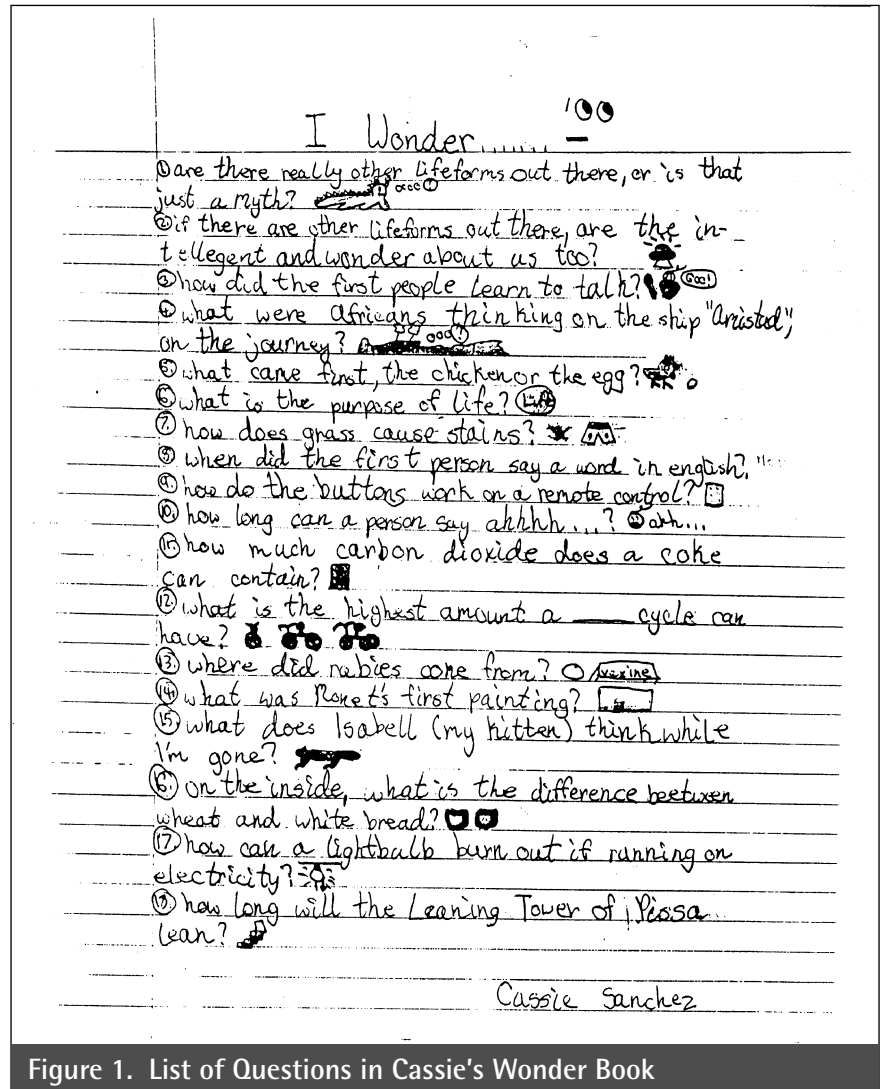 I Wonder.......
① are there really other lifeforms out there, or is that
just a myth?
② if there are other lifeforms out there, are the in-
tellegent and wonder about us too?
③ how did the first people learn to talk? Goo!
④ what were Africans thinking on the ship "Amistad",
on the journey?
⑤ what came first, the chicken or the egg?
⑥ what is the purpose of life? Life
⑦ how does grass cause stains?
⑧ when did the first person say a word in english?
⑨ how do the buttons work on a remote control?
⑩ how long can a person say ahhhh...? ahh...
⑪ how much carbon dioxide does a coke
can contain?
⑫ what is the highest amount a ____ cycle can
have?
⑬ where did rabies come from? vaxine
⑭ what was Monet's first painting?
⑮ what does Isabell (my kitten) think while
I'm gone?
⑯ on the inside, what is the difference beetween
wheat and white bread?
⑰ how can a lightbulb burn out if running on
electricity?
⑱ how long will the Leaning Tower of Pissa
lean?
Cassie Sanchez
Figure 1. List of Questions in Cassie's Wonder Book